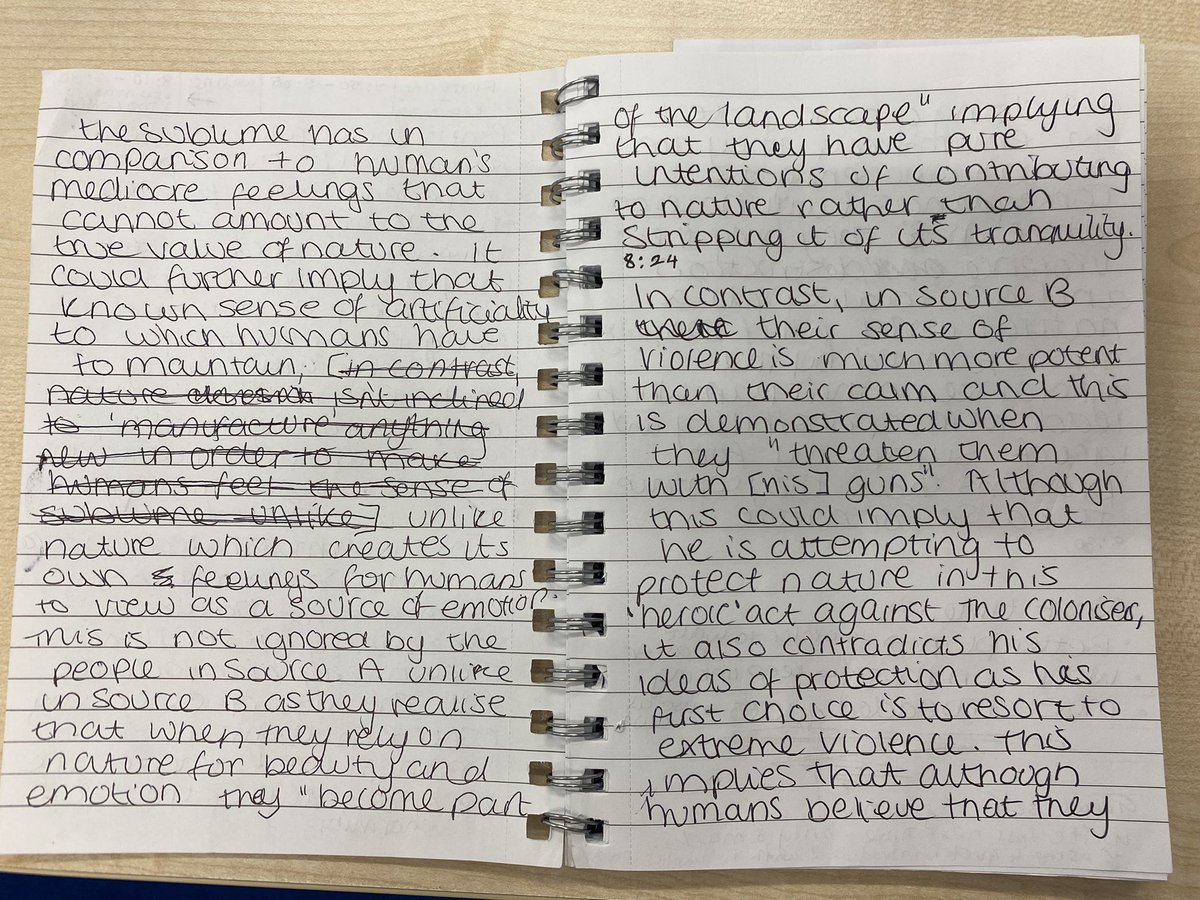 the sublime has in
comparison to human's
mediocre feelings that
cannot amount to the
true value of nature. it
could further imply that
known sense of artificiality
to which humans have
to maintain, [in contrast,
nature isn't inclined
to 'manufacture' anything
new in order to make
humans feel the sense of
sublime unlike] unlike
nature which creates its
own feelings for humans
to view as a source of emotion.
This is not ignored by the
people in source A unlike
in source B as they realise
that when they rely on
nature for beauty and
emotion they "become part
of the landscape" implying
that they have pure
intentions of contributing
to nature rather than
stripping it of its tranquility.
8:24
In contrast, in source B
their sense of
violence is much more potent
than their calm and this
is demonstrated when
they "threaten them
with [his] guns". Although
this could imply that
he is attempting to
protect nature in this
'heroic' act against the coloniser,
it also contradicts his
ideas of protection as his
first choice is to resort to
extreme violence. This
implies that although
humans believe that they